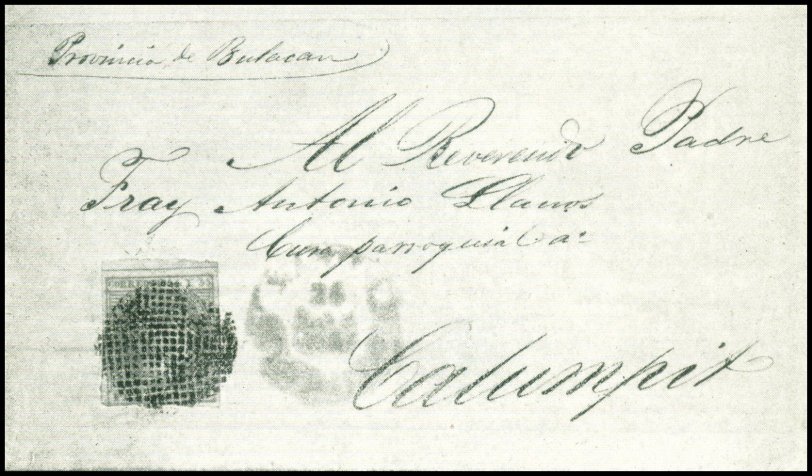 Provincia de Bulacan
Al Reverendo Padre
Fray Antonio Llanos
Cura parroquial
Calumpit
CORREOS
24